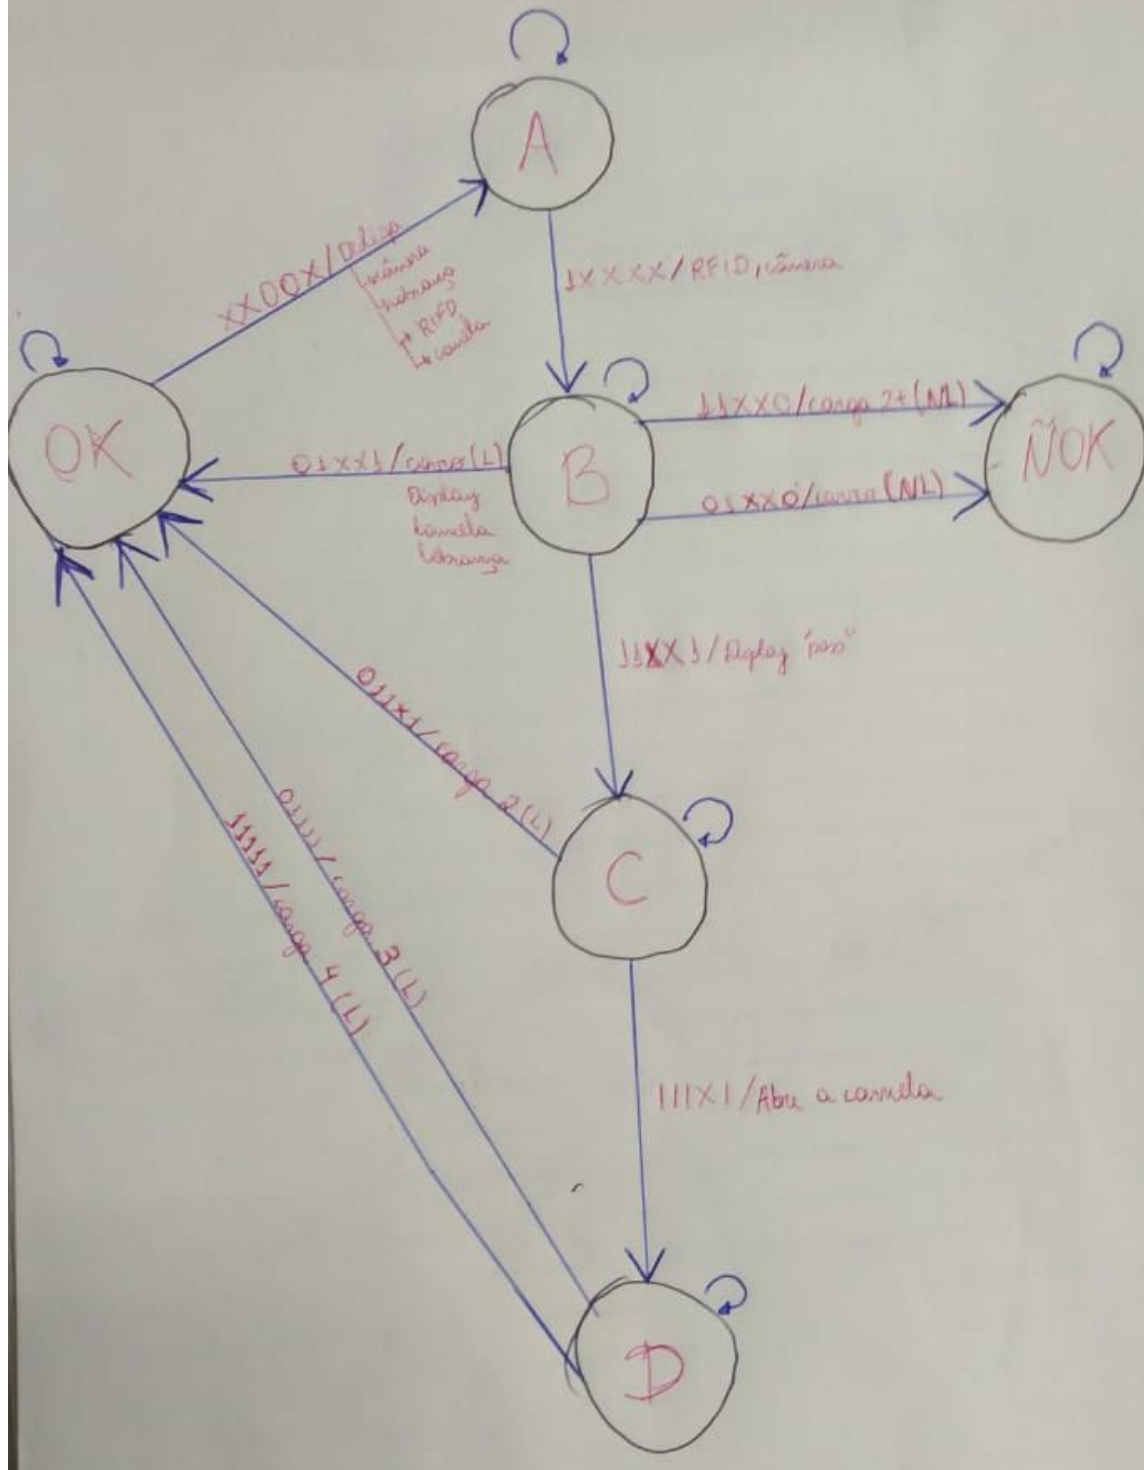 A
XX00X/Desliga
câmera
cobrança
RIFD
cancela
1XXXX/RFID, câmera
OK
B
ÑOK
11XX0/carga 2+(NL)
01XX1/carro(L)
Display
Cancela
Cobrança
01XX0/carro(NL)
11XX1/Display "pass"
011X1/carga 2(L)
C
01111/carga 3(L)
11111/carga 4(L)
111X1/Abre a cancela
D